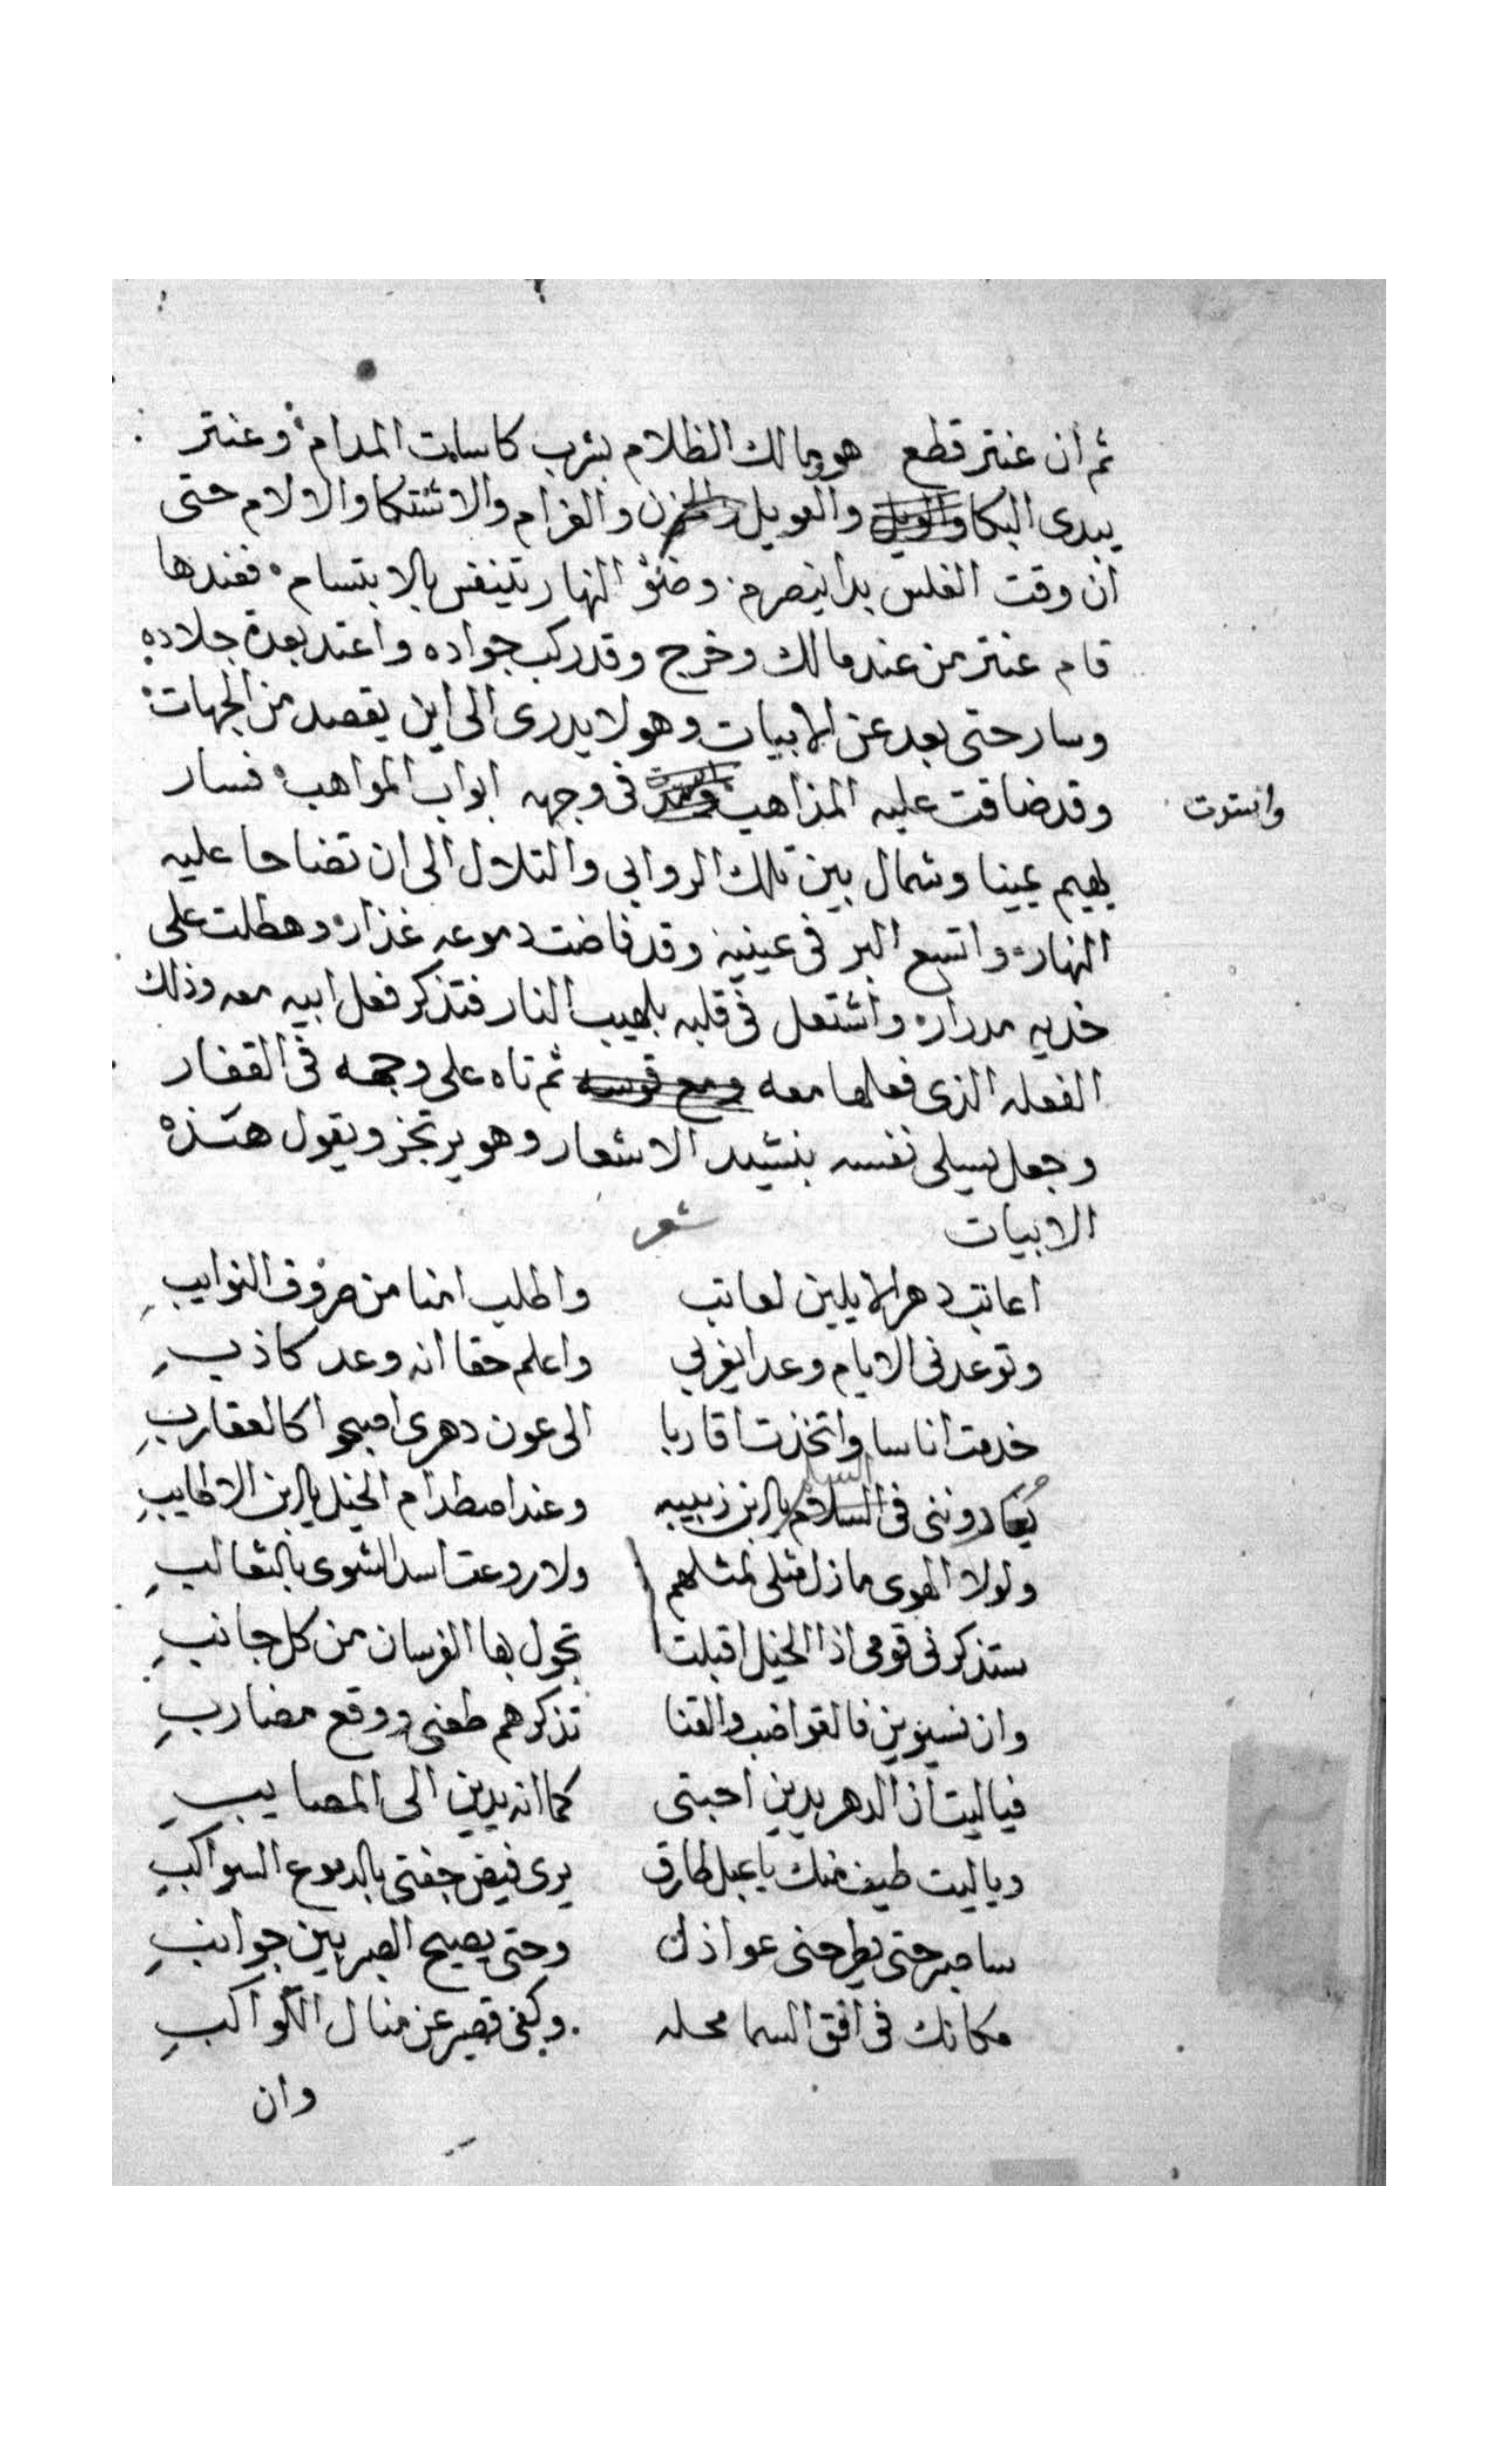 ثم أن عنتر قطع هو ومالك الظلام بشرب كاسات المدام وعنتر
يبدى البكا والعويل والحزن والغرام والاشتكا والالام حتى
ان وقت الغلس بدا ينصرم وضؤ النهار تينفس بالابتسام فعندها
قام عنتر من عند مالك وخرج وقد ركب جواده واعتد بعدة جلاده
وسار حتى بعد عن الابيات وهو لا يدرى الى اين يقصد من الجهات
وقد ضاقت عليه المذاهب فى وجهه ابواب المواهب فسار
وانسدت
يهيم يمينا وشمال بين تلك الروابى والتلال الى ان تضاحا عليه
النهار واتسع البر فى عينيه وقد فاضت دموعه غذار وهطلت على
خديه مدرار واشتعل فى قلبه بلهيب النار فتذكر فعل ابيه معه وذلك
الفعله الذى فعلها معه ومع فرسه ثم تاه على وجهه فى القفار
وجعل يسلى نفسه بنشيد الاشعار وهو يرتجز ويقول هذه
الابيات شعر
اعاتب دهرا لا يلين لعاتب واطلب امنا من صروف النوايب
وتوعدنى الايام وعدا يغربى واعلم حقا انه وعد كاذب
خدمت اناسا واتخذت اقاربا الى عون دهرى اصبحوا كالعقارب
ينادوننى فى السلم يا ابن زبيبه وعند اصطدام الخيل يا ابن الاطايب
ولولا الهوى ما ذل مثلى لمثلهم ولا روعت اسد الشرى بالثعالب
ستذكرنى قومى اذا الخيل اقبلت تجول بها الفرسان من كل جانب
وان نسيونى فالقواضب والقنا تذكرهم طعنى ووقع مضارب
فيا ليت ان الدهر يدين احبتى كما انه يدين الى المصايب
ويا ليت طيف منك يا عبل طارق يرى فيض جفنتى بالدموع السواكب
ساصبر حتى يطرحنى عواذل وحتى يصيح الصبر بين جوانب
مكانك فى افق السما محله وكفى قصير عن منال الكواكب
وان